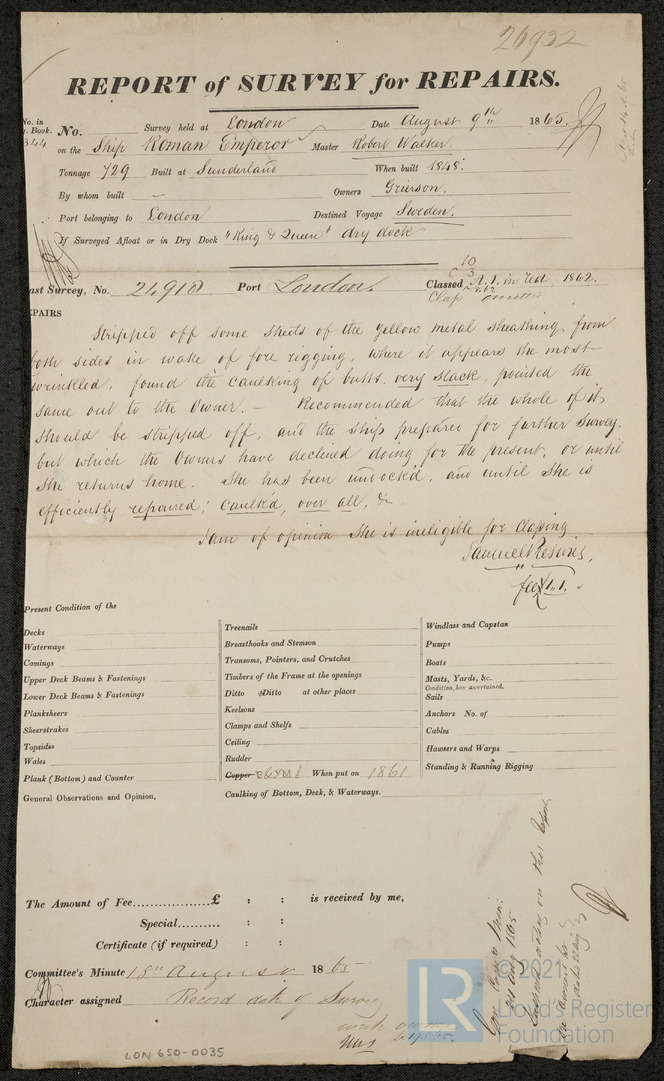 26932
REPORT of SURVEY for REPAIRS.
No. in
Book.
344
No. Survey held at London Date August 9th 1865.
on the Ship Roman Emperor Master Robert Walker.
Tonnage 729 Built at Sunderland When built 1848.
By whom built — Owners Grierson.
Port belonging to London Destined Voyage Sweden.
If Surveyed Afloat or in Dry Dock "King & Queen" dry dock
10
ast Survey, No. 21,910 Port London. Classed A.1. in red 1862.
EPAIRS
Stripped off some sheets of the yellow metal sheathing from
both sides in wake of fore rigging, where it appears the most
wrinkled, found the caulking of butts very slack, pointed the
same out to the Owner. – Recommended that the whole of it
should be stripped off, and the ship prepared for further survey.
but which the Owners have declined doing for the present, or until
she returns home. She has been undock'd, and until she is
efficiently repaired, caulk'd, over all, &c.
I am of opinion she is ineligible for classing
Samuel Pretious,
fee £1.1.
Present Condition of the
Decks
Waterways
Comings
Upper Deck Beams & Fastenings
Lower Deck Beams & Fastenings
Planksheers
Sheerstrakes
Topsides
Wales
Plank (Bottom) and Counter
General Observations and Opinion,
Treenails
Breasthooks and Stemson
Transoms, Pointers, and Crutches
Timbers of the Frame at the openings
Ditto Ditto at other places
Keelsons
Clamps and Shelfs
Ceiling
Rudder
Copper When put on 1861
Caulking of Bottom, Deck, & Waterways.
Windlass and Capstan
Pumps
Boats
Masts, Yards, &c.
Condition, how ascertained.
Sails
Anchors No. of
Cables
Hawsers and Warps
Standing & Running Rigging
The Amount of Fee.................£ : : is received by me,
Special.......... : :
Certificate (if required) : :
Committee's Minute 18th August 1865
Character assigned Record date of Survey
LON 650-0035
LR
© 2021
Lloyd's Register
Foundation